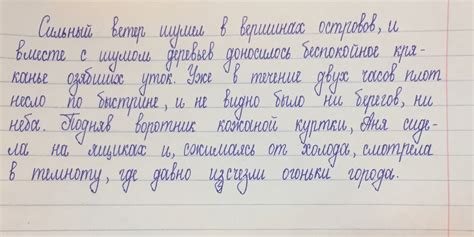 Сильный ветер шумел в вершинах островов, и
вместе с шумом деревьев доносилось беспокойное кря-
канье озябших уток. Уже в течение двух часов плот
несло по быстрине, и не видно было ни берегов, ни
неба. Подняв воротник кожаной куртки, Аня сиде-
ла на ящиках и, сжимаясь от холода, смотрела
в темноту, где давно исчезли огоньки города.